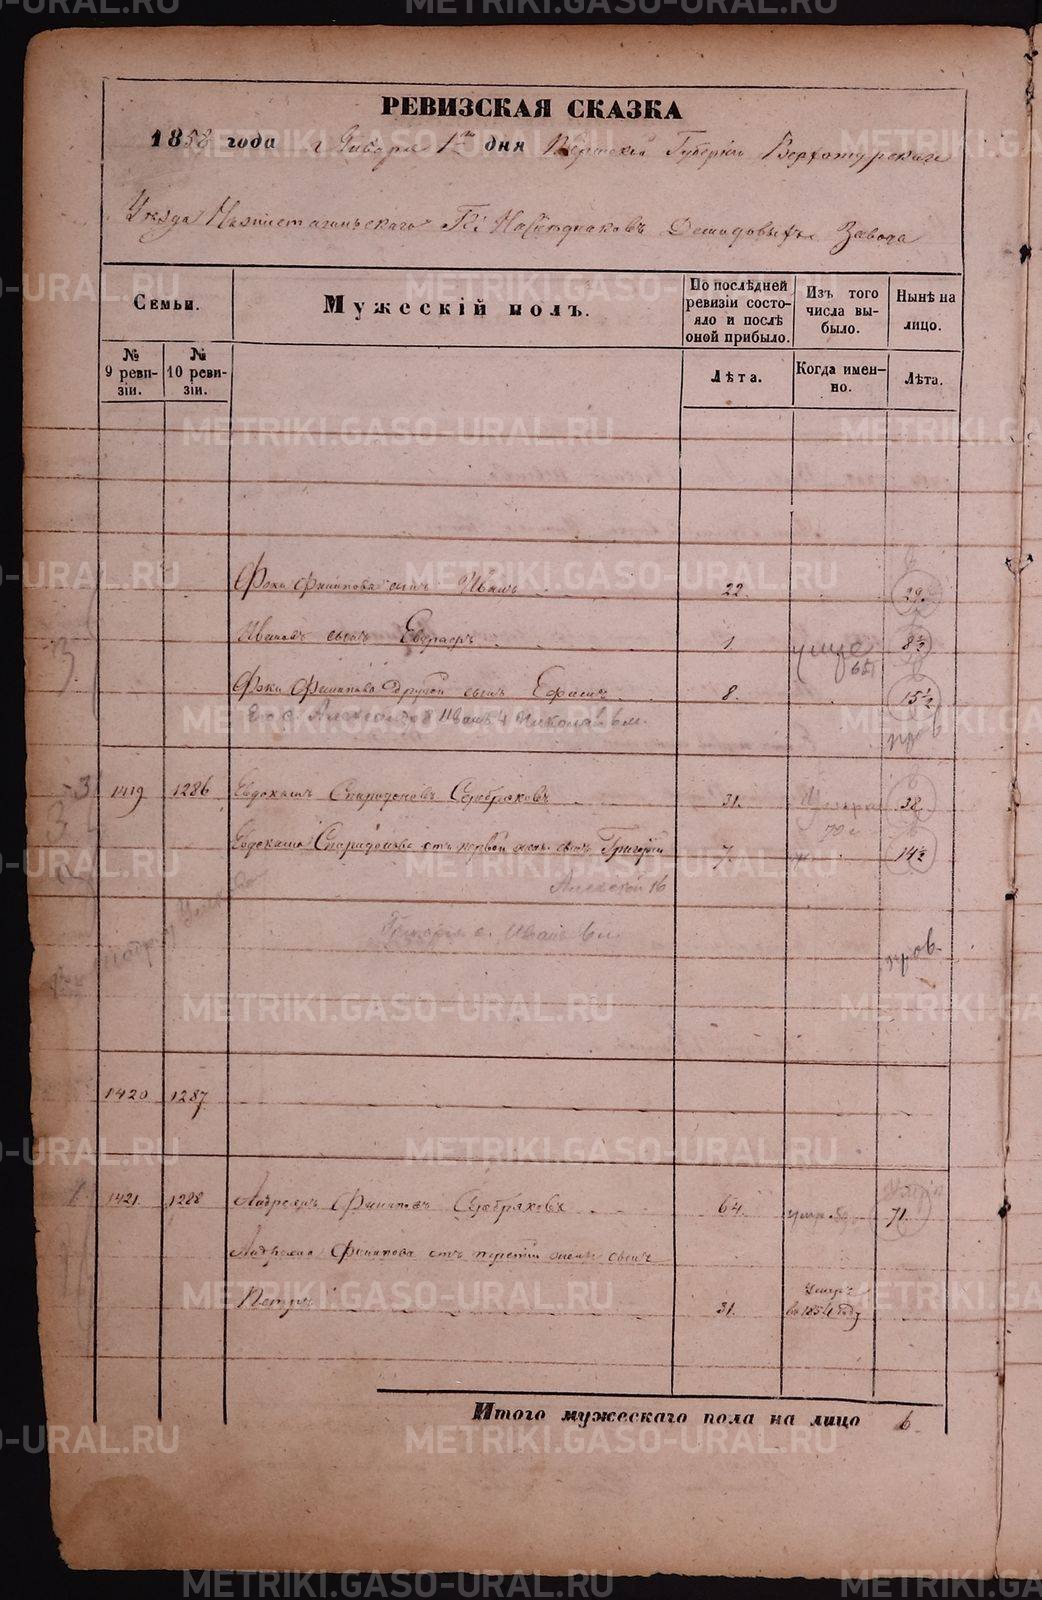 РЕВИЗСКАЯ СКАЗКА
1858 года Января 1го дня Пермской Губернiи Верхотурскаго
Уѣзда Нижнетагильскаго Гг. Наслѣдниковъ Демидовыхъ Завода
Семьи.
Мужескiй полъ.
По послѣдней ревизiи состояло и послѣ оной прибыло.
Изъ того числа выбыло.
Нынѣ на лицо.
№ 9 ревизiи.
№ 10 ревизiи.
Лѣта.
Когда именно.
Лѣта.
Фоки Филипова сынъ Иванъ 22. 29½
Ивановъ сынъ 1 8½
Фоки Филипова другой сынъ Ефимъ 8. 15½
Его с. Александр 8 Иванъ 4 Николай 6 м.
пров
1419 1286 Евдокимъ Спиридоновъ Серебряковъ 31. 38
Евдокима Спиридонова отъ первой жены сынъ Григорiй 7. 14½
Алексей 16
Григорья с. Иван 6 м
пров.
1420 1287
1421 1288 Андреянъ Филиповъ Серебряковъ 64. 71.
Андреяна Филипова отъ третiй жены сынъ
Петръ 31. Умеръ въ 1854 году
Итого мужескаго пола на лицо 6
METRIKI.GASO-URAL.RU